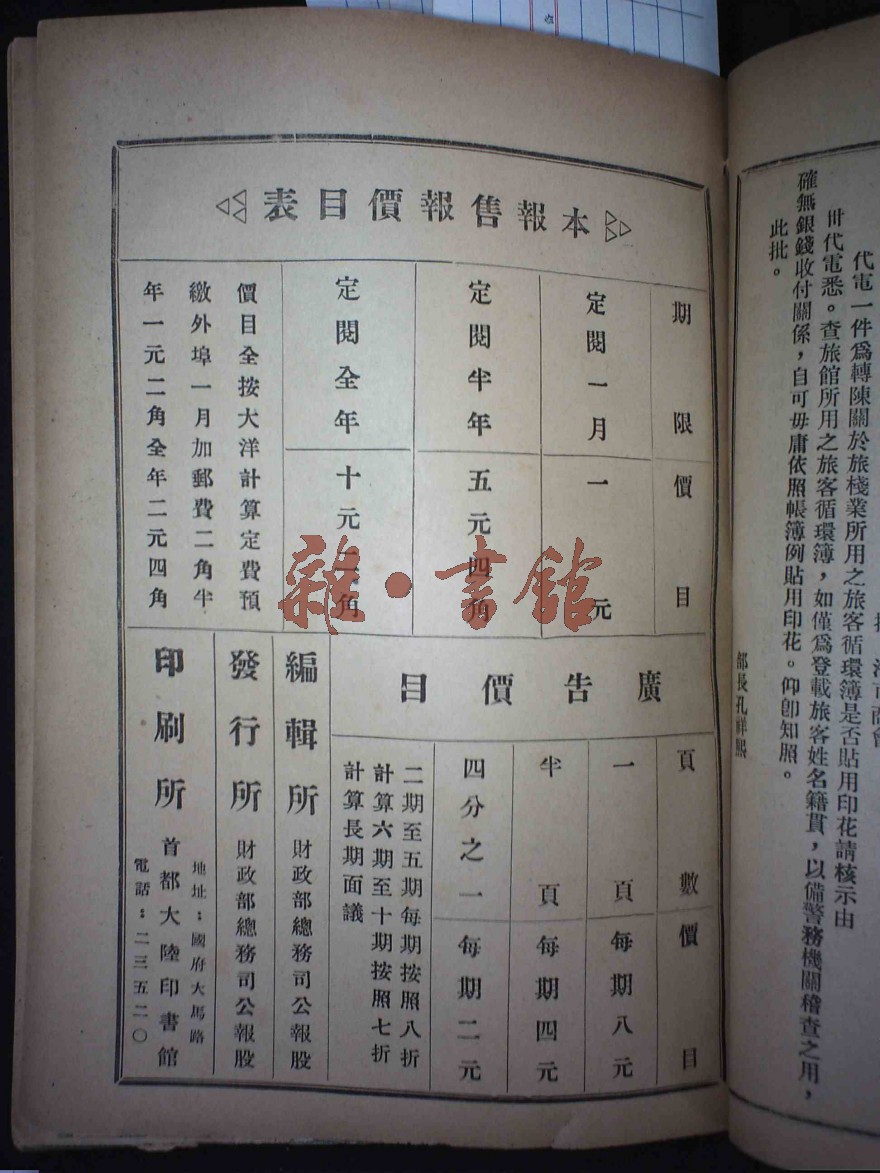 代電一件爲轉陳關於旅棧業所用之旅客循環簿是否貼用印花請核示由
卅代電悉。查旅館所用之旅客循環簿，如僅爲登載旅客姓名籍貫，以備警務機關稽查之用，
確無銀錢收付關係，自可毋庸依照帳簿例貼用印花。仰卽知照。
此批。
部長孔祥熙
本報售報價目表
期限
價目
定閱一月
一元
定閱半年
五元四角
定閱全年
十元二角
價目全按大洋計算定費預
繳外埠一月加郵費二角半
年一元二角全年二元四角
廣告價目
頁數
價目
一頁
每期八元
半頁
每期四元
四分之一
每期二元
二期至五期每期按照八折
計算六期至十期按照七折
計算長期面議
編輯所 財政部總務司公報股
發行所 財政部總務司公報股
印刷所 首都大陸印書館
地址：國府大馬路
電話：二三五二〇
雜·書館